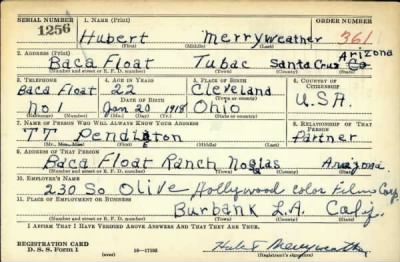 SERIAL NUMBER 1. NAME (Print) ORDER NUMBER
1256 Hubert Merryweather 361
(First) (Middle) (Last)
2. ADDRESS (Print) Arizona
Baca Float Tubac Santa Cruz Co
(Number and street or R. F. D. number) (Town) (County) (State)
3. TELEPHONE 4. AGE IN YEARS 5. PLACE OF BIRTH 6. COUNTRY OF CITIZENSHIP
Baca Float 22 Cleveland
DATE OF BIRTH (Town or county) U.S.A.
No. 1 Jan 20 1918 Ohio
(Mo.) (Day) (Yr.) (State or country)
7. NAME OF PERSON WHO WILL ALWAYS KNOW YOUR ADDRESS 8. RELATIONSHIP OF THAT PERSON
TT Pendleton Partner
(Mr., Mrs., Miss) (First) (Middle) (Last)
9. ADDRESS OF THAT PERSON
Baca Float Ranch Nogales Arizona
(Number and street or R. F. D. number) (Town) (County) (State)
10. EMPLOYER'S NAME
230 So Olive Hollywood Color Film Corp.
11. PLACE OF EMPLOYMENT OR BUSINESS
Burbank L.A. Calif.
(Number and street or R. F. D. number) (Town) (County) (State)
I AFFIRM THAT I HAVE VERIFIED ABOVE ANSWERS AND THAT THEY ARE TRUE.
REGISTRATION CARD
D. S. S. Form 1 (over) 16—17105 Hubert Merryweather
(Registrant's signature)